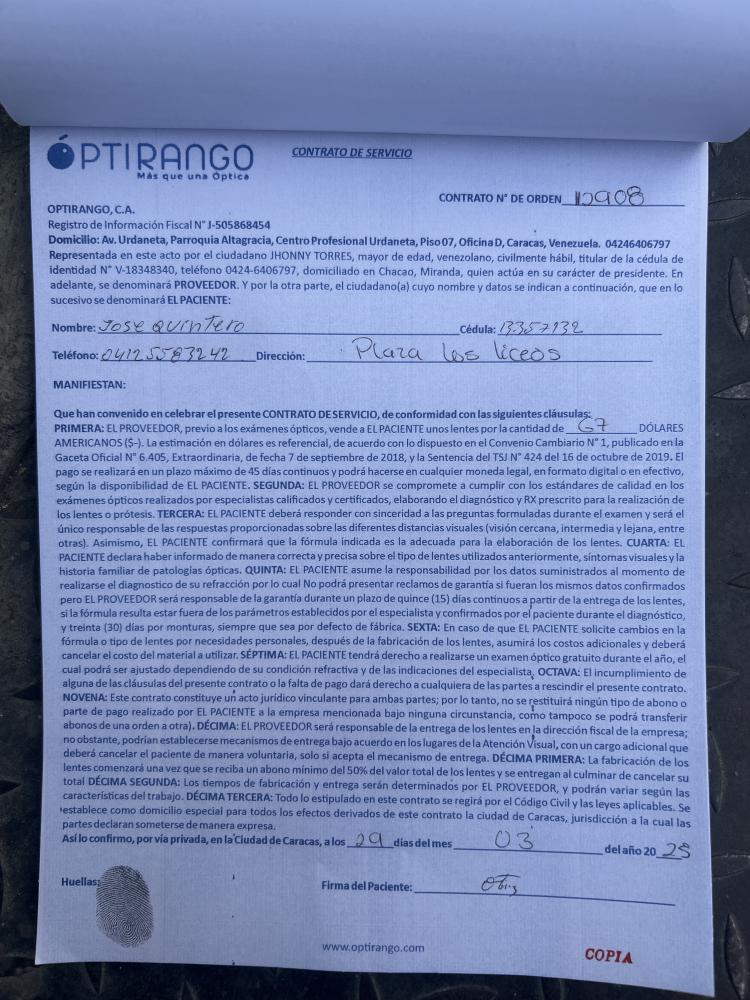 ÓPTIRANGO
Más que una Óptica
CONTRATO DE SERVICIO
CONTRATO N° DE ORDEN 12908
OPTIRANGO, C.A.
Registro de Información Fiscal N° J-505868454
Domicilio: Av. Urdaneta, Parroquia Altagracia, Centro Profesional Urdaneta, Piso 07, Oficina D, Caracas, Venezuela. 04246406797
Representada en este acto por el ciudadano JHONNY TORRES, mayor de edad, venezolano, civilmente hábil, titular de la cédula de
identidad N° V-18348340, teléfono 0424-6406797, domiciliado en Chacao, Miranda, quien actúa en su carácter de presidente. En
adelante, se denominará PROVEEDOR. Y por la otra parte, el ciudadano(a) cuyo nombre y datos se indican a continuación, que en lo
sucesivo se denominará EL PACIENTE:
Nombre: Jose Quintero Cédula: 13357132
Teléfono: 04125583242 Dirección: Plaza los liceos
MANIFIESTAN:
Que han convenido en celebrar el presente CONTRATO DE SERVICIO, de conformidad con las siguientes cláusulas:
PRIMERA: EL PROVEEDOR, previo a los exámenes ópticos, vende a EL PACIENTE unos lentes por la cantidad de 67 DÓLARES
AMERICANOS ($-). La estimación en dólares es referencial, de acuerdo con lo dispuesto en el Convenio Cambiario N° 1, publicado en la
Gaceta Oficial N° 6.405, Extraordinaria, de fecha 7 de septiembre de 2018, y la Sentencia del TSJ N° 424 del 16 de octubre de 2019. El
pago se realizará en un plazo máximo de 45 días continuos y podrá hacerse en cualquier moneda legal, en formato digital o en efectivo,
según la disponibilidad de EL PACIENTE. SEGUNDA: EL PROVEEDOR se compromete a cumplir con los estándares de calidad en los
exámenes ópticos realizados por especialistas calificados y certificados, elaborando el diagnóstico y RX prescrito para la realización de
los lentes o prótesis. TERCERA: EL PACIENTE deberá responder con sinceridad a las preguntas formuladas durante el examen y será el
único responsable de las respuestas proporcionadas sobre las diferentes distancias visuales (visión cercana, intermedia y lejana, entre
otras). Asimismo, EL PACIENTE confirmará que la fórmula indicada es la adecuada para la elaboración de los lentes. CUARTA: EL
PACIENTE declara haber informado de manera correcta y precisa sobre el tipo de lentes utilizados anteriormente, síntomas visuales y la
historia familiar de patologías ópticas. QUINTA: EL PACIENTE asume la responsabilidad por los datos suministrados al momento de
realizarse el diagnostico de su refracción por lo cual No podrá presentar reclamos de garantía si fueran los mismos datos confirmados
pero EL PROVEEDOR será responsable de la garantía durante un plazo de quince (15) días continuos a partir de la entrega de los lentes,
si la fórmula resulta estar fuera de los parámetros establecidos por el especialista y confirmados por el paciente durante el diagnóstico,
y treinta (30) días por monturas, siempre que sea por defecto de fábrica. SEXTA: En caso de que EL PACIENTE solicite cambios en la
fórmula o tipo de lentes por necesidades personales, después de la fabricación de los lentes, asumirá los costos adicionales y deberá
cancelar el costo del material a utilizar. SÉPTIMA: EL PACIENTE tendrá derecho a realizarse un examen óptico gratuito durante el año, el
cual podrá ser ajustado dependiendo de su condición refractiva y de las indicaciones del especialista. OCTAVA: El incumplimiento de
alguna de las cláusulas del presente contrato o la falta de pago dará derecho a cualquiera de las partes a rescindir el presente contrato.
NOVENA: Este contrato constituye un acto jurídico vinculante para ambas partes; por lo tanto, no se restituirá ningún tipo de abono o
parte de pago realizado por EL PACIENTE a la empresa mencionada bajo ninguna circunstancia, como tampoco se podrá transferir
abonos de una orden a otra). DÉCIMA: EL PROVEEDOR será responsable de la entrega de los lentes en la dirección fiscal de la empresa;
no obstante, podrían establecerse mecanismos de entrega bajo acuerdo en los lugares de la Atención Visual, con un cargo adicional que
deberá cancelar el paciente de manera voluntaria, solo si acepta el mecanismo de entrega. DÉCIMA PRIMERA: La fabricación de los
lentes comenzará una vez que se reciba un abono mínimo del 50% del valor total de los lentes y se entregan al culminar de cancelar su
total DÉCIMA SEGUNDA: Los tiempos de fabricación y entrega serán determinados por EL PROVEEDOR, y podrán variar según las
características del trabajo. DÉCIMA TERCERA: Todo lo estipulado en este contrato se regirá por el Código Civil y las leyes aplicables. Se
establece como domicilio especial para todos los efectos derivados de este contrato la ciudad de Caracas, jurisdicción a la cual las
partes declaran someterse de manera expresa.
Así lo confirmo, por vía privada, en la Ciudad de Caracas, a los 29 días del mes 03 del año 20 25
Huellas: Firma del Paciente:
www.optirango.com
COPIA